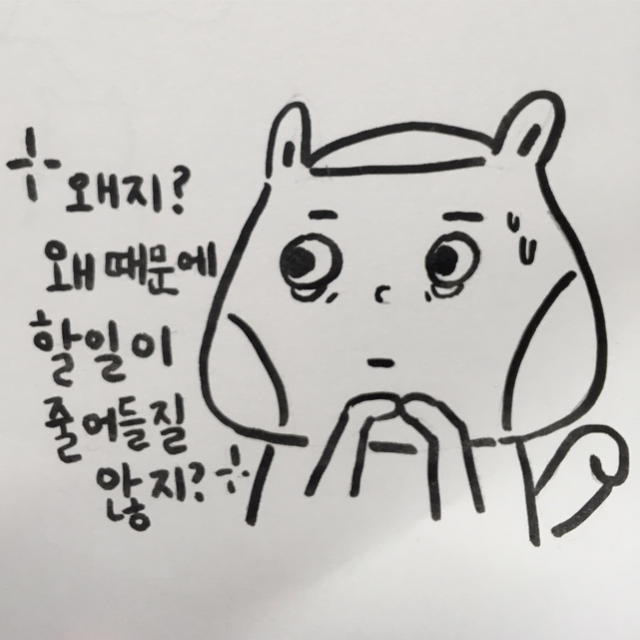 왜지?
왜 때문에
할일이
줄어들질
않지?